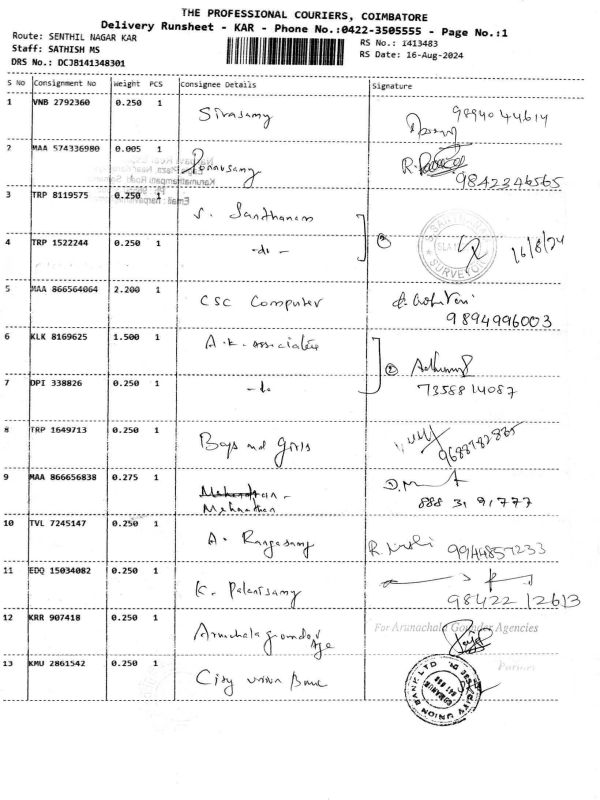 THE PROFESSIONAL COURIERS, COIMBATORE
Delivery Runsheet - KAR - Phone No.:0422-3505555 - Page No.:1
Route: SENTHIL NAGAR KAR
RS No.: 1413483
Staff: SATHISH MS
RS Date: 16-Aug-2024
DRS No.: DCJB141348301
S No Consignment No Weight PCS Consignee Details Signature
1 VNB 2792360 0.250 1 Sivasamy 9894044614
2 MAA 574336980 0.005 1 Ponnusamy R. 9842346565
3 TRP 8119575 0.250 1 S. Santhanam
4 TRP 1522244 0.250 1 -do- ② SURVEYOR 16/8/24
5 MAA 866564064 2.200 1 CSC Computer 9894996003
6 KLK 8169625 1.500 1 A.K. associates
7 DPI 338826 0.250 1 -do- ② 7358814087
8 TRP 1649713 0.250 1 Boys and Girls
9 MAA 866656838 0.275 1 D.M 888 31 91777
10 TVL 7245147 0.250 1 A. Rangasamy R. 9944857233
11 EDQ 15034082 0.250 1 K. Palanisamy 9842212613
12 KRR 907418 0.250 1 Arunchala gounder Age
For Arunachala Gounder Agencies
Partner
13 KMU 2861542 0.250 1 City union Bank
CITY UNION BANK LTD